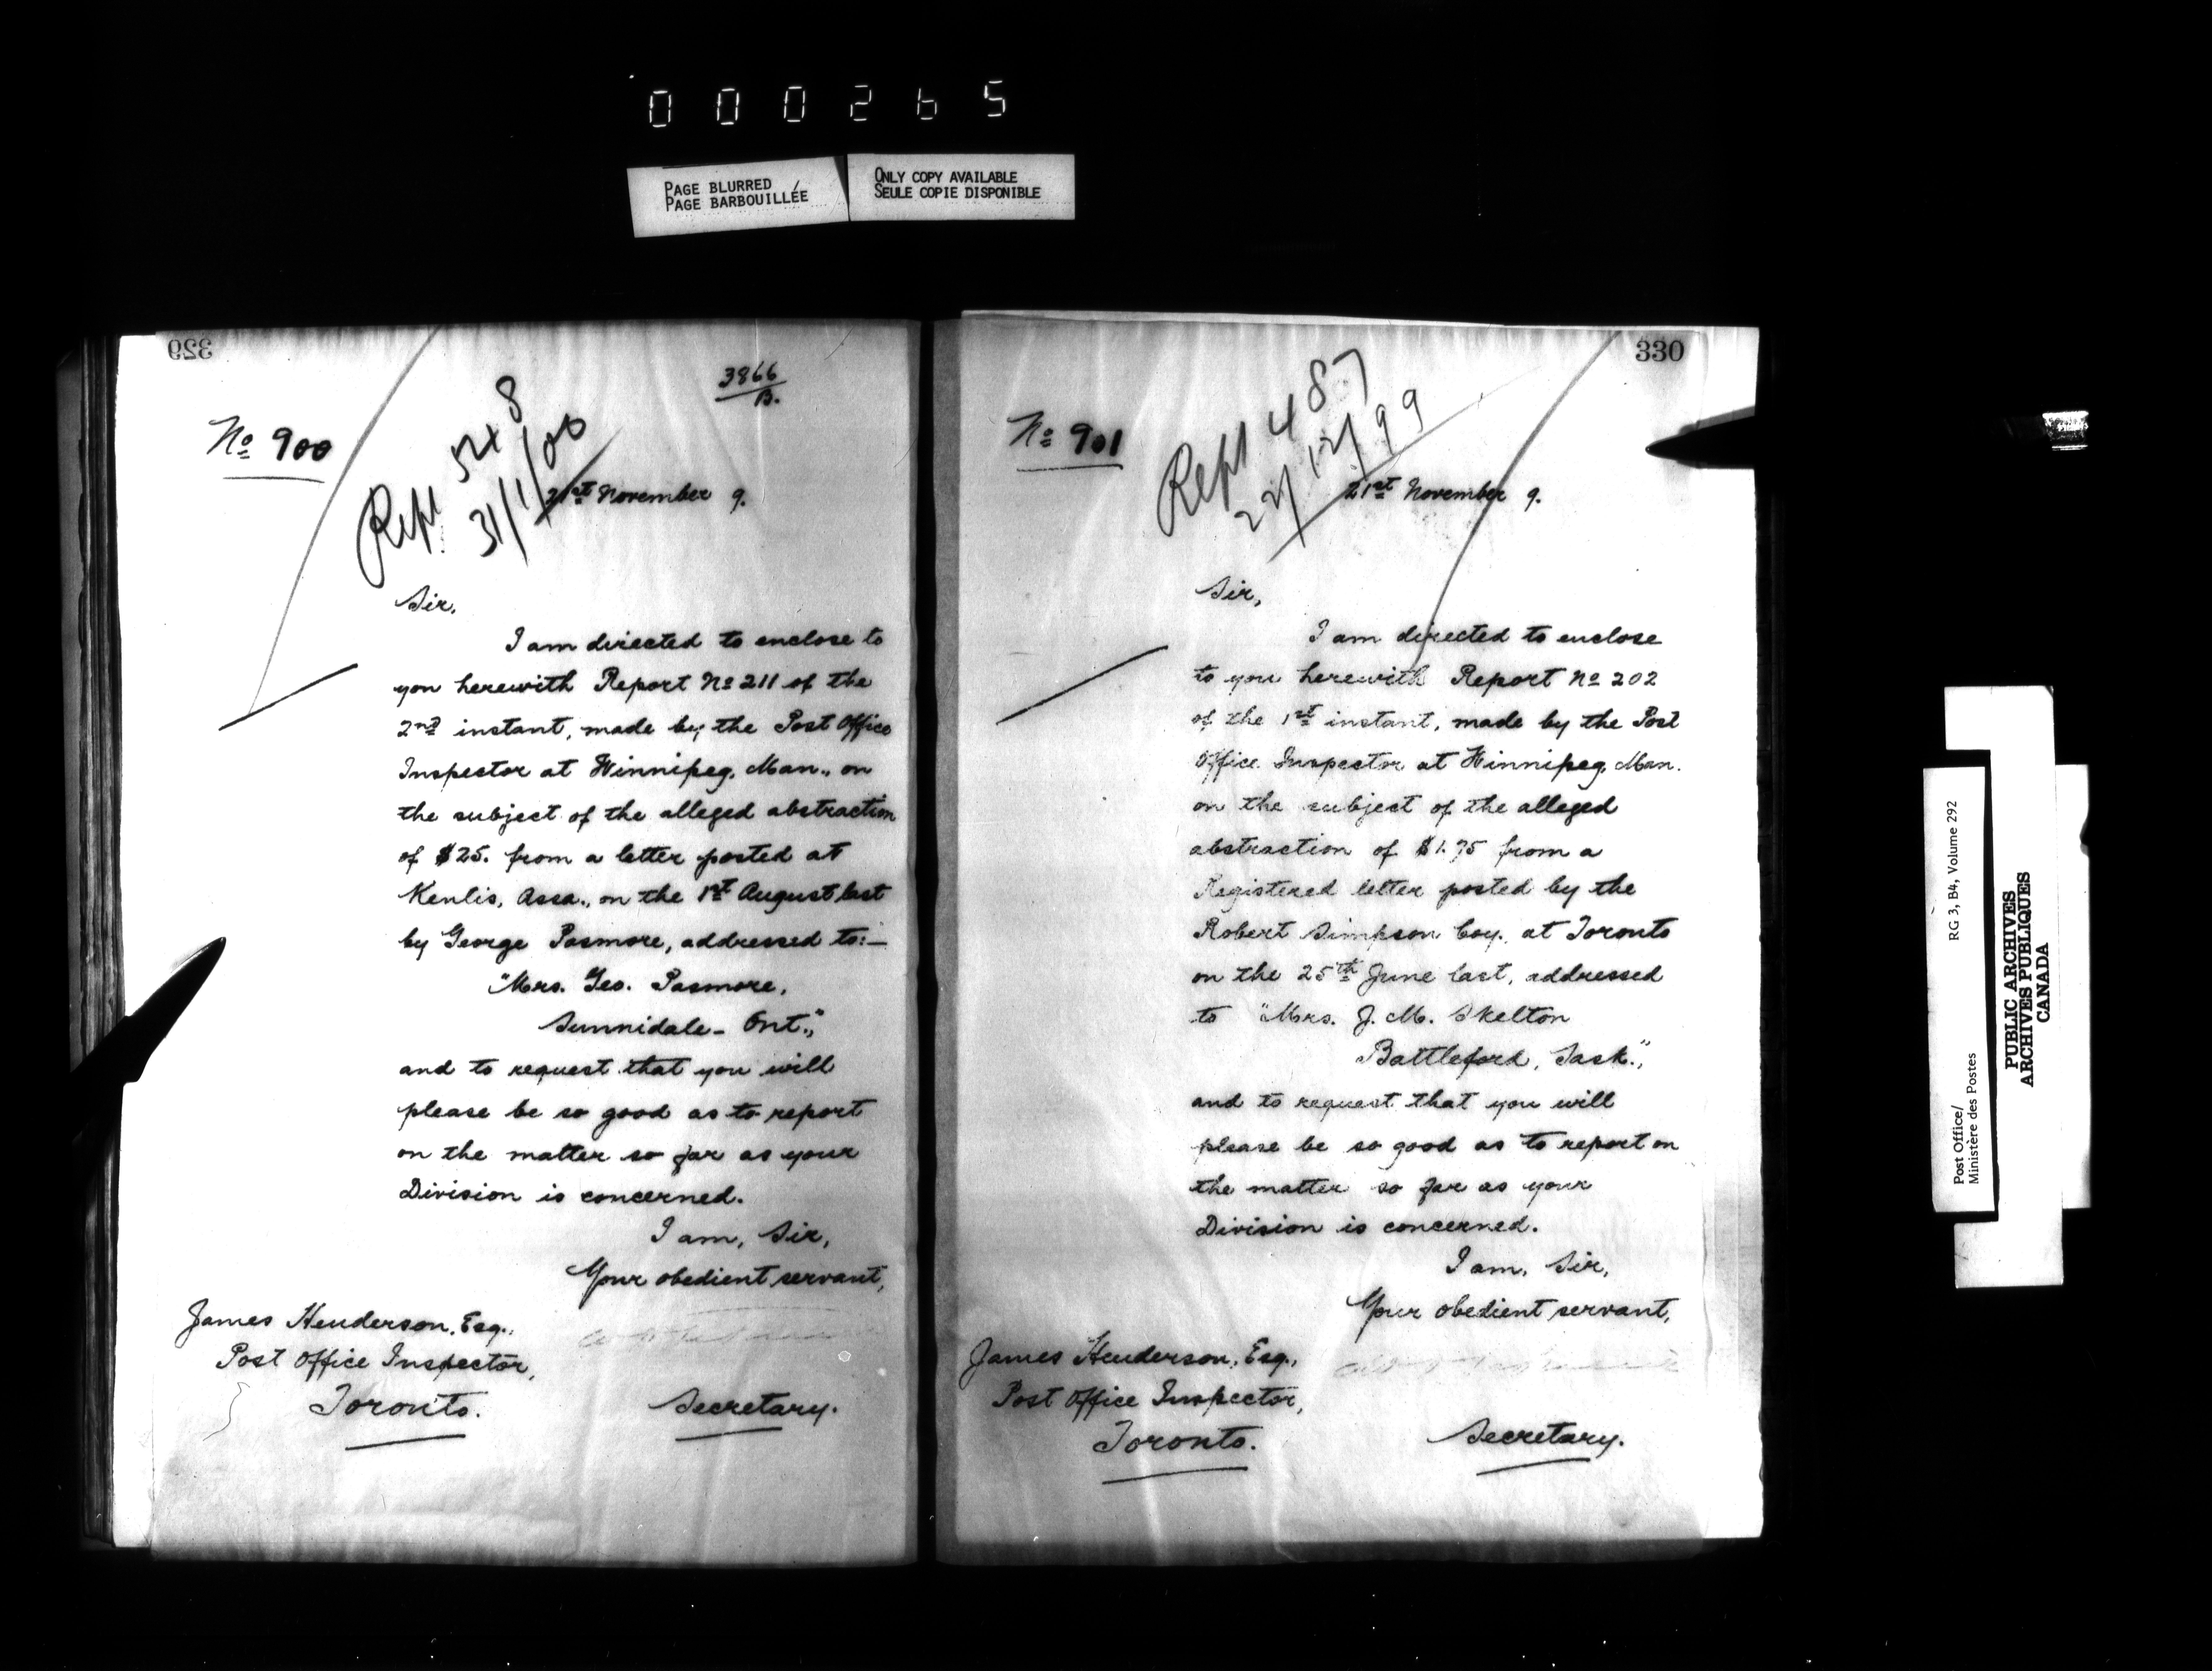 000265
PAGE BLURRED
PAGE BARBOUILLÉE
ONLY COPY AVAILABLE
SEULE COPIE DISPONIBLE
329
3866
B.
No 900
Rept 548
31/1/00
21st November 9.
Sir,
I am directed to enclose to
you herewith Report No 211 of the
2nd instant, made by the Post Office
Inspector at Winnipeg, Man., on
the subject of the alleged abstraction
of $25. from a letter posted at
Kenlis, Assa., on the 1st August last
by George Pasmore, addressed to:—
"Mrs. Geo. Pasmore,
Sunnidale - Ont.,"
and to request that you will
please be so good as to report
on the matter so far as your
Division is concerned.
I am, Sir,
Your obedient servant,
James Henderson, Esq.,
Post Office Inspector,
Toronto.
Secretary.
330
No 901
Rept 487
22/12/99
21st November 9.
Sir,
I am directed to enclose
to you herewith Report No 202
of the 1st instant, made by the Post
Office Inspector at Winnipeg, Man.
on the subject of the alleged
abstraction of $1.75 from a
Registered letter posted by the
Robert Simpson Coy. at Toronto
on the 25th June last, addressed
to "Mrs. J. M. Skelton
Battleford, Sask.",
and to request that you will
please be so good as to report on
the matter so far as your
Division is concerned.
I am, Sir,
Your obedient servant,
James Henderson, Esq.,
Post Office Inspector,
Toronto.
Secretary.
Post Office/
Ministère des Postes
RG 3, B4, Volume 292
PUBLIC ARCHIVES
ARCHIVES PUBLIQUES
CANADA